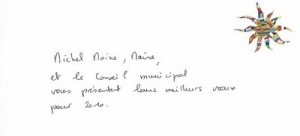 Michel Moine, Maire,
et le Conseil municipal
vous présentent leurs meilleurs vœux
pour 2010.